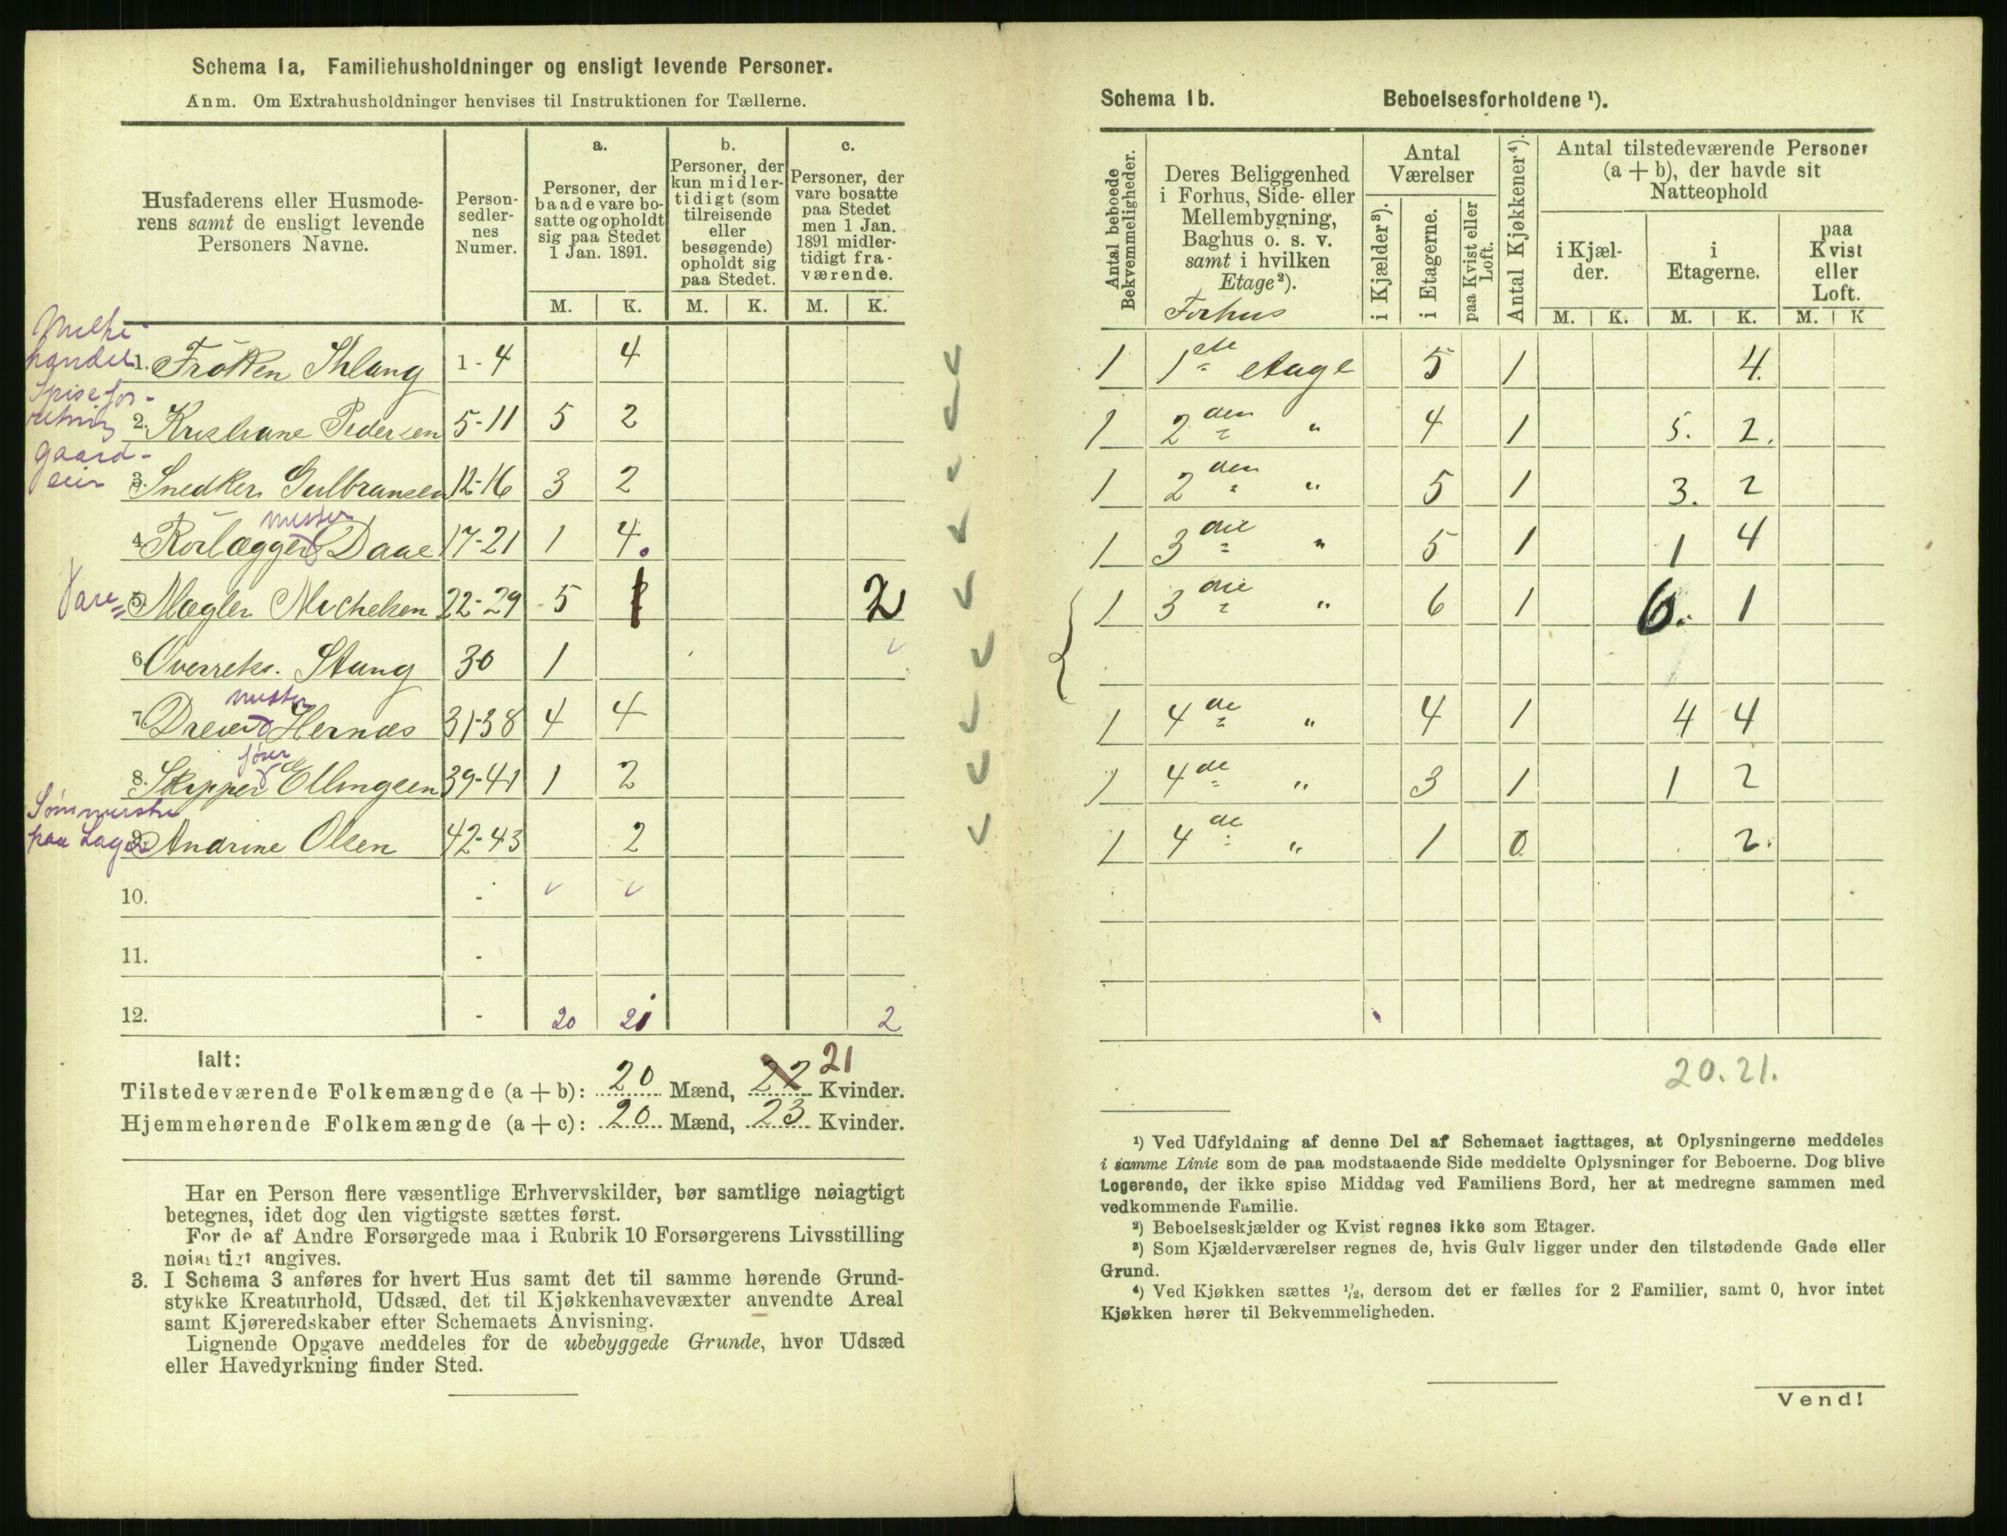 Schema 1a. Familiehusholdninger og ensligt levende Personer.
Anm. Om Extrahusholdninger henvises til Instruktionen for Tællerne.
Husfaderens eller Husmoderens samt de ensligt levende Personers Navne.
Personsedlernes Numer.
a.
Personer, der baade vare bosatte og opholdt sig paa Stedet 1 Jan. 1891.
b.
Personer, der kun midlertidigt (som tilreisende eller besøgende) opholdt sig paa Stedet.
c.
Personer, der vare bosatte paa Stedet men 1 Jan. 1891 midlertidigt fraværende.
M. K. M. K. M. K.
Melkehandel 1. Frøken Ihlang 1-4 4
Spiseforretning 2. Kristiane Pedersen 5-11 5 2
Gaardeier 3. Snedker Gulbransen 12-16 3 2
4. Rørlægger mester Daae 17-21 1 4.
Vare= 5. Mægler Michelsen 22-29 5 1 2
6. Overrets. Stang 30 1
7. Dreier mester Hernæs 31-38 4 4
8. Skipper fører Ellingsen 39-41 1 2
Sømmerske paa Lager 9. Andrine Olsen 42-43 2
10. -
11. -
12. - 20 21 2
Ialt:
Tilstedeværende Folkemængde (a + b): 20 Mænd, 22 21 Kvinder.
Hjemmehørende Folkemængde (a + c): 20 Mænd, 23 Kvinder.
Har en Person flere væsentlige Erhvervskilder, bør samtlige nøiagtigt
betegnes, idet dog den vigtigste sættes først.
For de af Andre Forsørgede maa i Rubrik 10 Forsørgerens Livsstilling
nøiagtigt angives.
3. I Schema 3 anføres for hvert Hus samt det til samme hørende Grund-
stykke Kreaturhold, Udsæd, det til Kjøkkenhavevæxter anvendte Areal
samt Kjøreredskaber efter Schemaets Anvisning.
Lignende Opgave meddeles for de ubebyggede Grunde, hvor Udsæd
eller Havedyrkning finder Sted.
Schema 1b. Beboelsesforholdene ¹).
Antal beboede Bekvemmeligheder.
Deres Beliggenhed i Forhus, Side- eller Mellembygning, Baghus o. s. v. samt i hvilken Etage²).
Forhus
Antal Værelser
i Kjælder³).
i Etagerne.
paa Kvist eller Loft.
Antal Kjøkkener⁴).
Antal tilstedeværende Personer
(a + b), der havde sit
Natteophold
i Kjælder.
i Etagerne.
paa Kvist eller Loft.
M. K. M. K. M. K
1 1ste etage 5 1 4.
1 2den " 4 1 5. 2.
1 2den " 5 1 3. 2
1 3die " 5 1 1 4
1 3die " 6 1 6. 1
1 4de " 4 1 4 4
1 4de " 3 1 1 2
1 4de " 1 0 2.
20. 21.
¹) Ved Udfyldning af denne Del af Schemaet iagttages, at Oplysningerne meddeles
i samme Linie som de paa modstaaende Side meddelte Oplysninger for Beboerne. Dog blive
Logerende, der ikke spise Middag ved Familiens Bord, her at medregne sammen med
vedkommende Familie.
²) Beboelseskjælder og Kvist regnes ikke som Etager.
³) Som Kjælderværelser regnes de, hvis Gulv ligger under den tilstødende Gade eller
Grund.
⁴) Ved Kjøkken sættes ½, dersom det er fælles for 2 Familier, samt 0, hvor intet
Kjøkken hører til Bekvemmeligheden.
Vend!